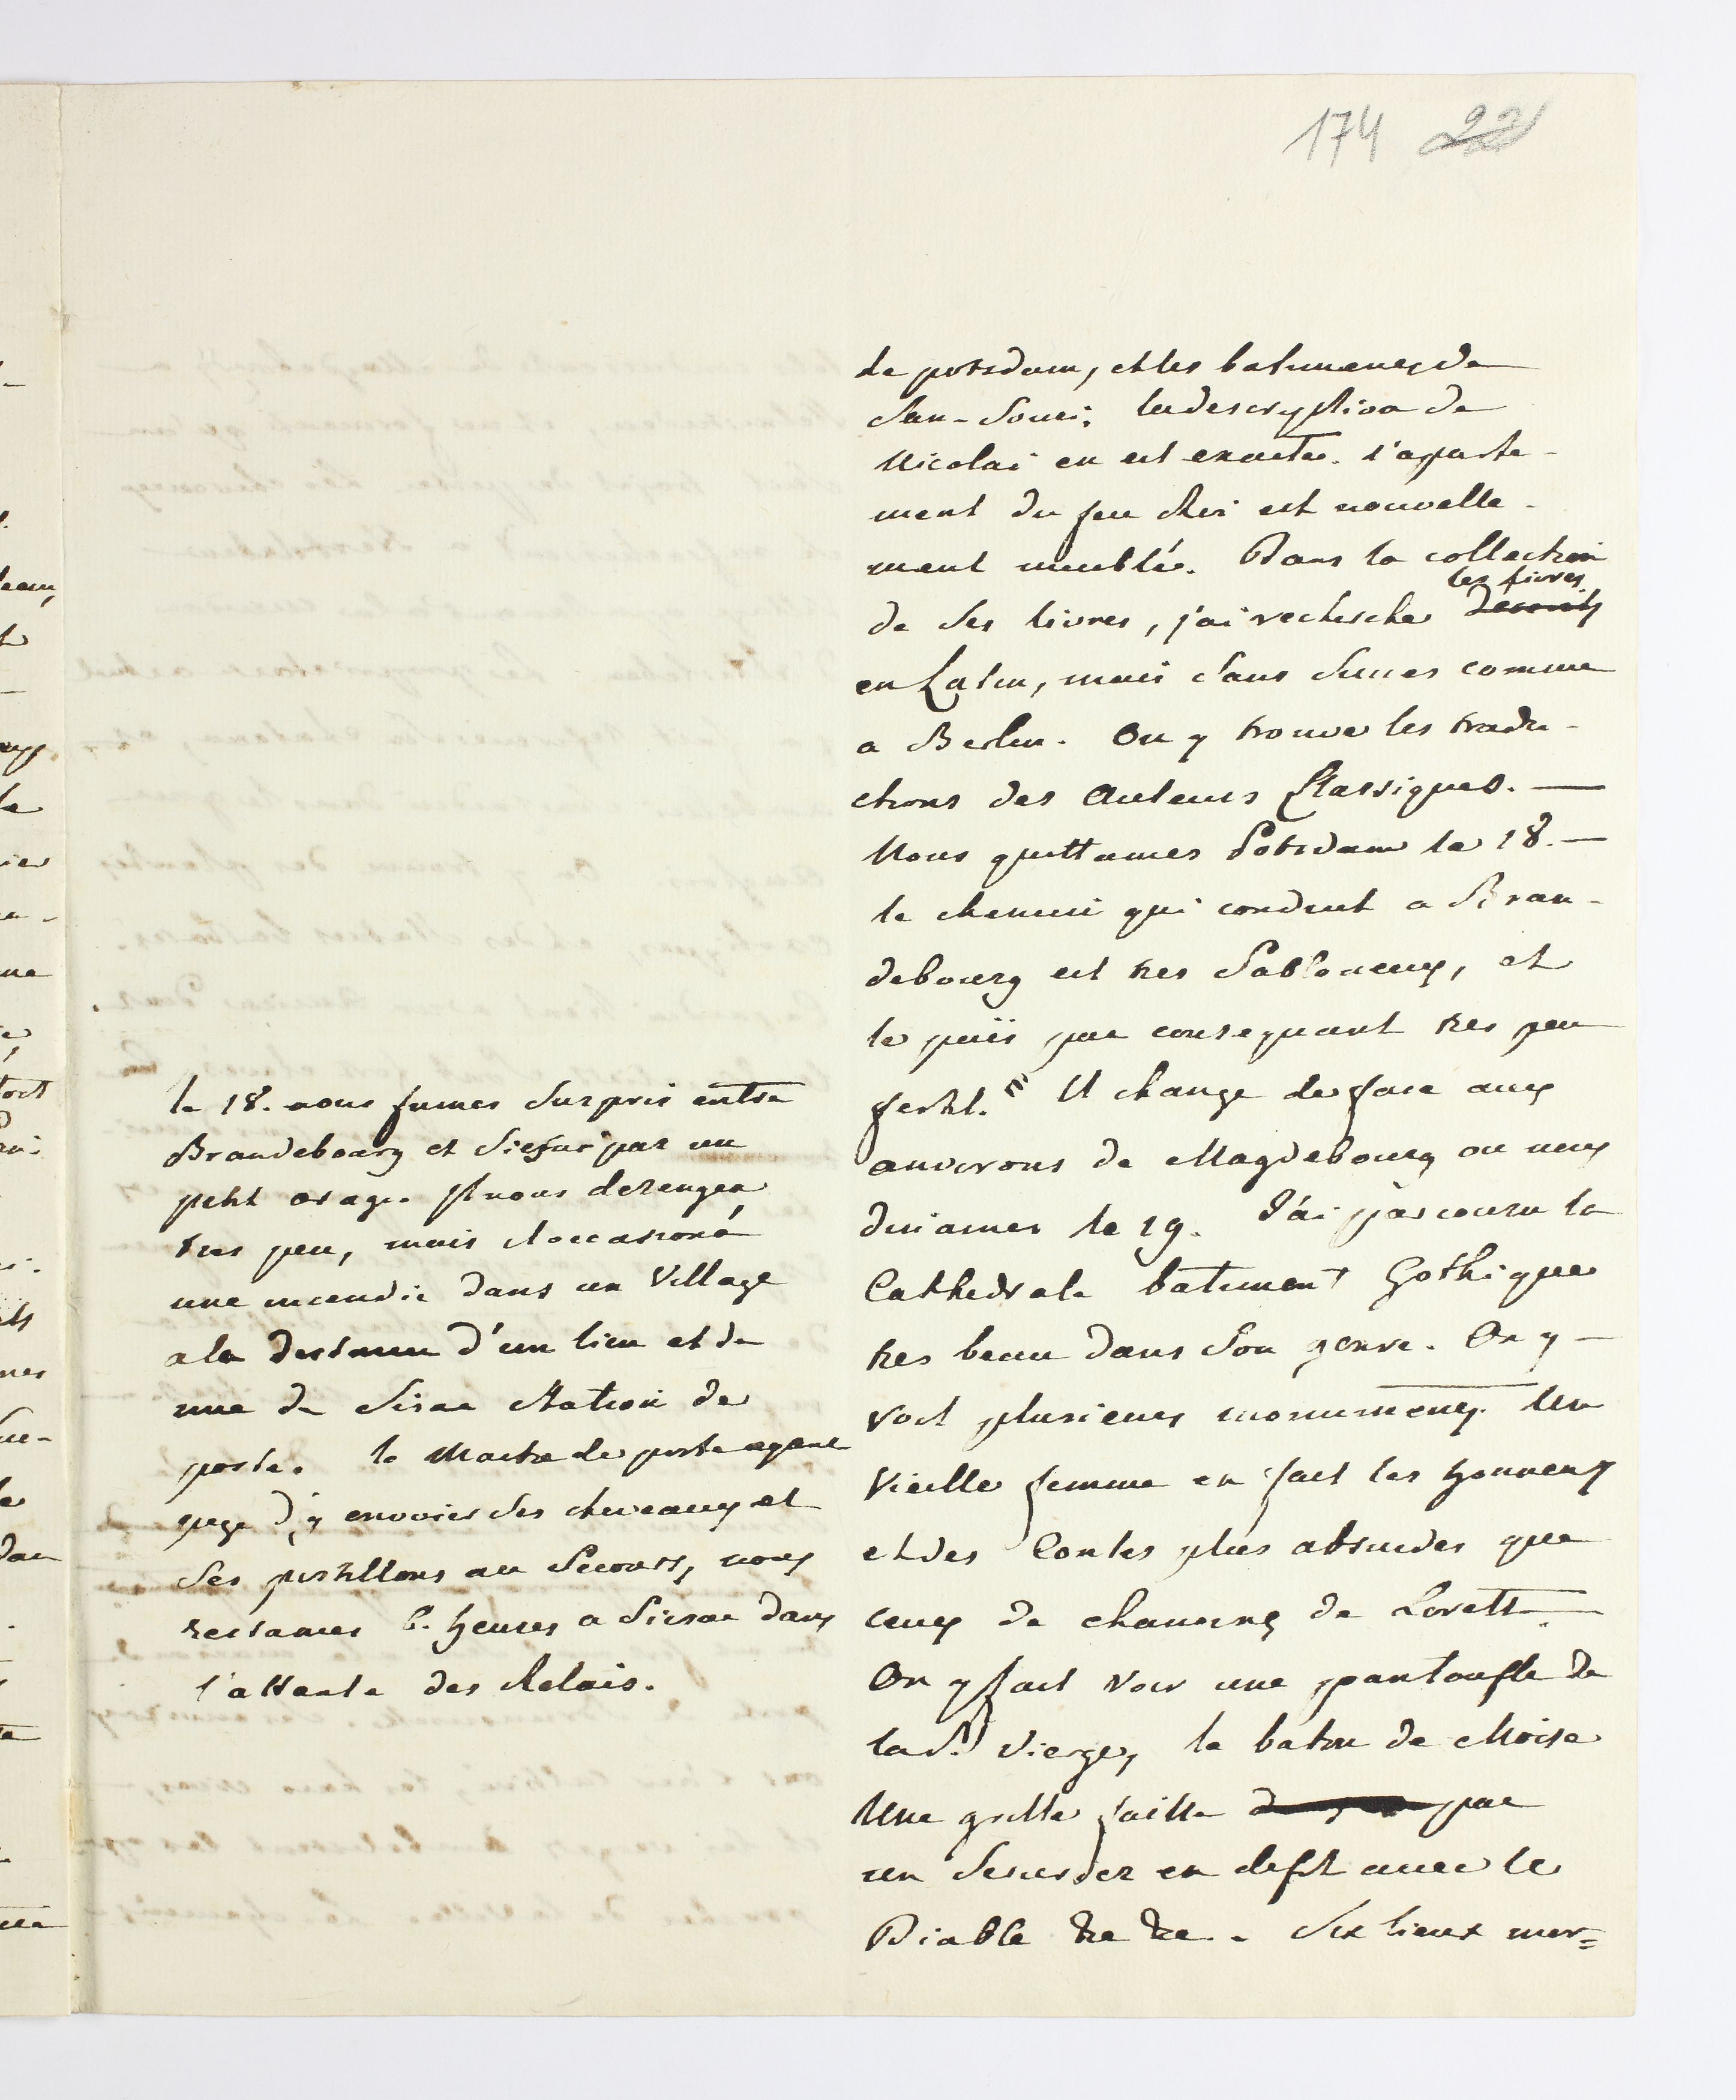 174 22
de potsdam, et les batimens de
San-Souci, la description de
Nicolai en est exacte. l'aparte-
ment du feu Roi est nouvelle-
ment meublée. Dans la collection
les livres
de ses livres, j'ai recherché
en Latin, mais sans succes comme
a Berlin. On y trouve les tradu-
ctions des Auteurs Classiques. —
Nous quittames Potsdam le 18. —
le chemin qui conduit a Bran-
debourg est tres Sabloneux, et
le païs par consequant tres peu
fertil. Il change de face aux
anvirons de Magdebourg ou nous
dinames le 19. J'ai parcouru la
Cathedrale batiment Gothique
tres beau dans son genre. On y —
voit plusieurs monumens. Une
Vieille femme en fait les honneurs
et des Contes plus absurdes que
ceux de chanoines de Lorette.
On y fait voir une pantoufle de
la Ste. Vierge, le baton de Moise
Une grille faitte par
un en defit avec le
Diable &c &c. Six lieux mer=
le 18. nous fumes surpris entre
Brandebourg et par un
petit orage. Il nous derengea
tres peu, mais il occasioná
une incendie dans un Village
a la distance d'un lieu et de
mie de Sisae Station de
poste. le Maitre de poste ayant
juge d'y envoier ses cheveaux et
ses postillons au Secours, nous
restames 6. heures a Siesae dans
l'attente des Relais.